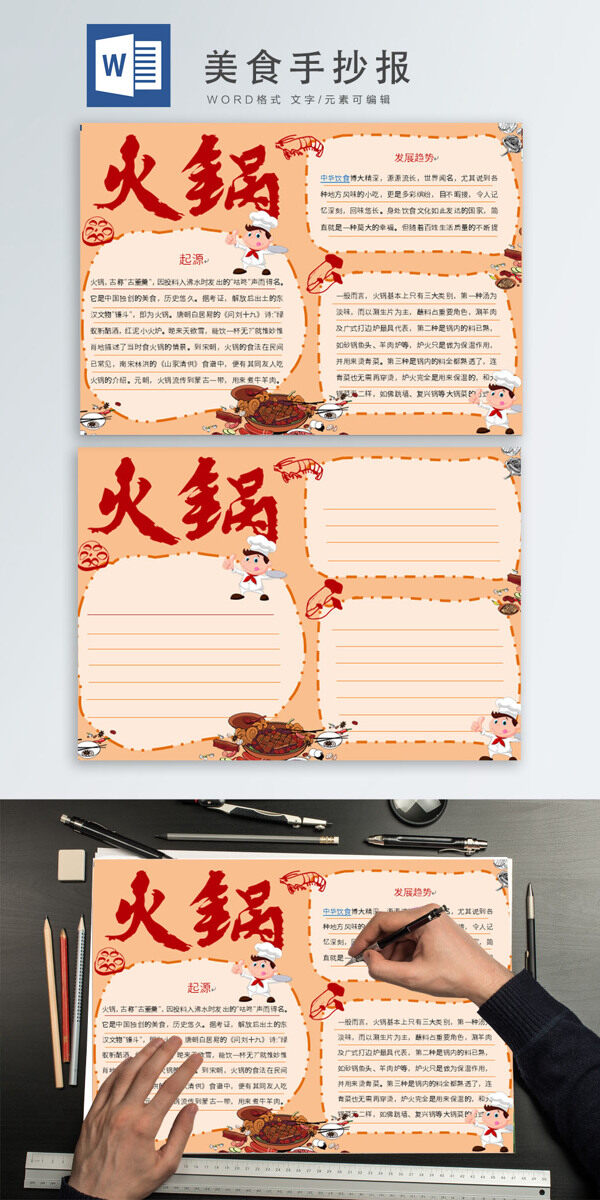 W
美食手抄报
WORD格式 文字/元素可编辑
火锅
发展趋势
中华饮食博大精深，源源流长，世界闻名，尤其说到各
种地方风味的小吃，更是多彩缤纷，目不暇接，令人
记忆深刻，回味悠长。身处饮食文化如此发达的国家，简
直就是一种莫大的幸福。但随着百姓生活质量的不断提
起源
火锅，古称“古董羹”，因投料入沸水时发出的“咕咚”声而得名。
它是中国独创的美食，历史悠久。据考证，解放后出土的东
汉文物“镬斗”，即为火锅。唐朝白居易的《问刘十九》诗:“绿
蚁新醅酒，红泥小火炉。晚来天欲雪，能饮一杯无?”就惟妙惟
肖地描述了当时食火锅的情景。到宋朝，火锅的食法在民间
已常见，南宋林洪的《山家清供》食谱中，便有其同友人吃
火锅的介绍。元朝，火锅流传到蒙古一带，用来煮牛羊肉。
一般而言，火锅基本上只有三大类别，第一种汤为
淡味，而以涮生片为主，蘸料占重要角色，涮羊肉
及广式打边炉最具代表，第二种是锅内的料已熟，
如砂锅鱼头、羊肉炉等，炉火只是做为保温作用，
并用来烫青菜。第三种是锅内料全都熟透了，连
青菜也无需再穿烫，炉火完全是用来保温的，和大
锅菜无二样，如佛跳墙、复兴锅等大锅菜
火锅
火锅
发展趋势
中华饮食博大精深，源源流长，世界闻名，尤其说到各
种地方风味的小吃
记忆深刻
直就是一
起源
火锅，古称“古董羹”，因投料入沸水时发出的“咕咚”声而得名。
它是中国独创的美食，历史悠久。据考证，解放后出土的东
汉文物“镬斗”，即为火锅。唐朝白居易的《问刘十九》诗:“绿
蚁新醅酒，红泥小火炉。晚来天欲雪，能饮一杯无?”就惟妙惟
肖地描述了当时食火锅的情景。到宋朝，火锅的食法在民间
清供》食谱中，便有其同友人吃
火锅流传到蒙古一带，用来煮牛羊肉。
一般而言，火锅基本上只有三大类别，第一种汤
淡味，而以涮生片为主，蘸料占重要角色，涮羊肉
及广式打边炉最具代表，第二种是锅内的料已熟，
如砂锅鱼头、羊肉炉等，炉火只是做为保温作用，
并用来烫青菜。第三种是锅内料全都熟透了，连
青菜也无需再穿烫，炉火完全是用来保温的，和大
锅菜无二样，如佛跳墙、复兴锅等大锅菜